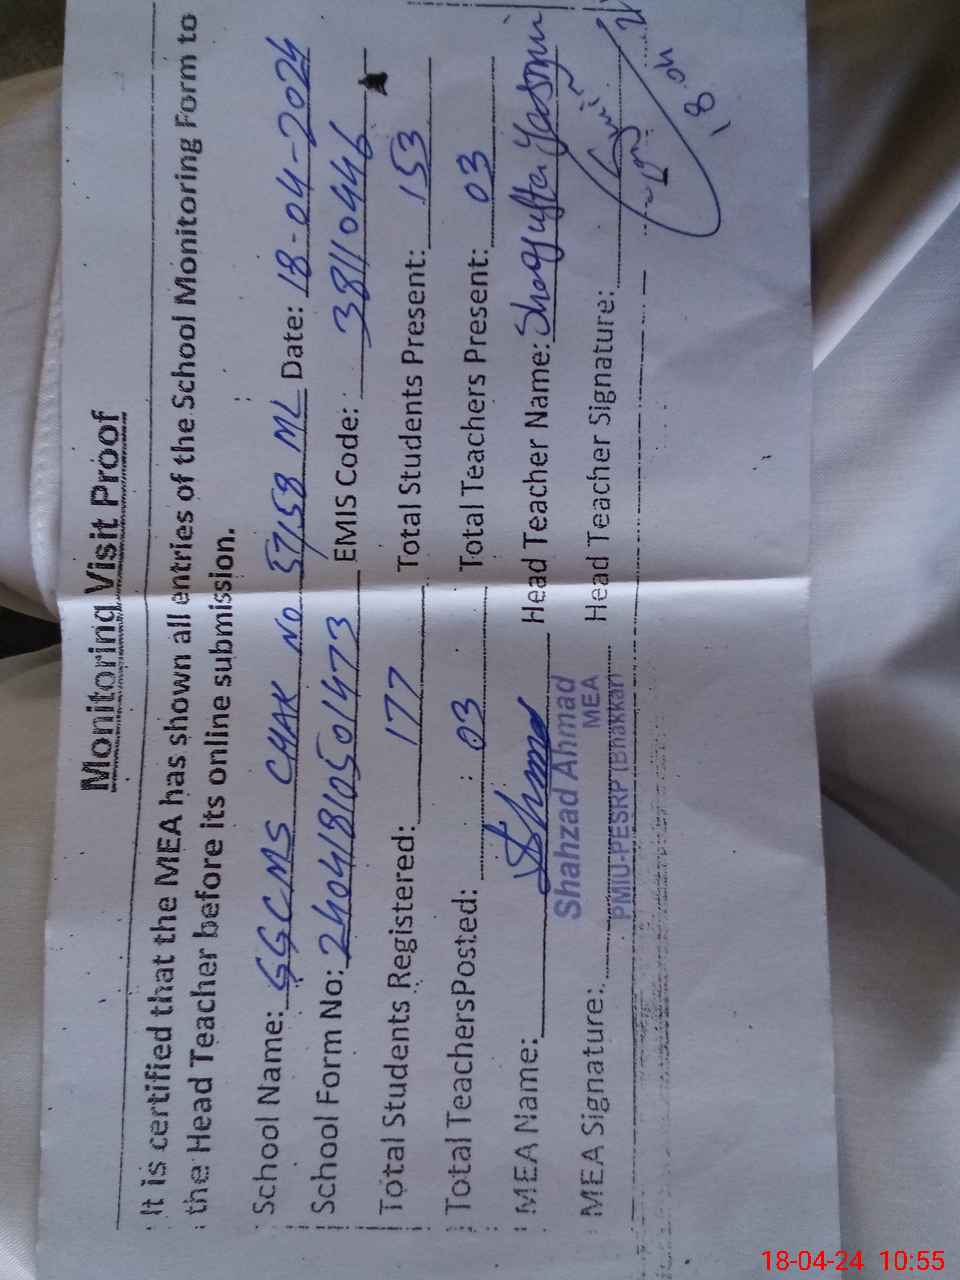 Monitoring Visit Proof
It is certified that the MEA has shown all entries of the School Monitoring Form to
the Head Teacher before its online submission.
School Name: GGCMS CHAK No 57/58 ML Date: 18-04-2024
School Form No: 24041810501473 EMIS Code: 38110446
Total Students Registered: 177 Total Students Present: 153
Total TeachersPosted: 03 Total Teachers Present: 03
MEA Name: Head Teacher Name: Shagufta Yasmin
Shahzad Ahmad
MEA
MEA Signature: Head Teacher Signature:
PMIU-PESRP (Bhakkar)
18-04-24 10:55